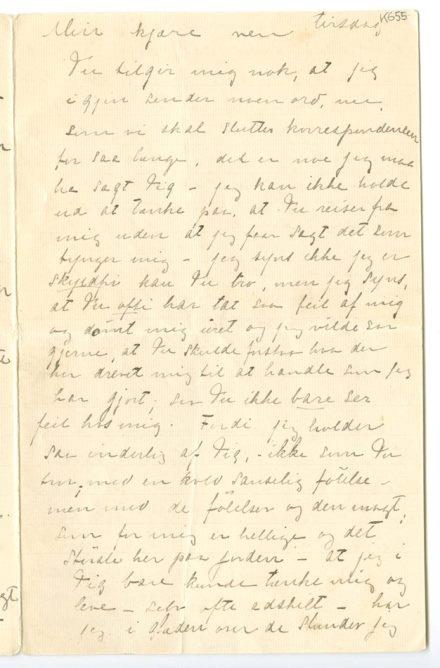 Min kjære ven tirsdag K655
Du tilgir mig nok, at jeg
igjen sender noen ord, nu,
som vi skal slutte korrespondencen
for saa længe, det er noe jeg maa
ha sagt Dig – jeg kan ikke holde
ud at tænke paa, at Du reiser fra
mig uden at jeg faar sagt det som
tynger mig – jeg syns ikke jeg er
skyldfri kan Du tro, men jeg syns,
at Du ofte har tat saa feil af mig
og dømt mig og jeg vilde saa
gjerne, at Du skulde forstaa hva der
har drevet mig til at handle som jeg
har gjort, ser Du ikke bare ser
feil hos mig. Fordi jeg holder
saa inderlig af Dig, – ikke som Du
tror, med en kold sanselig følelse –
men med de følelser og den magt,
som for mig er hellige og det
største her paa jorden – at jeg i
Dig bare kunde tænke mig og
leve – selv ofte adskilt – har
jeg i glæden over de stunder jeg